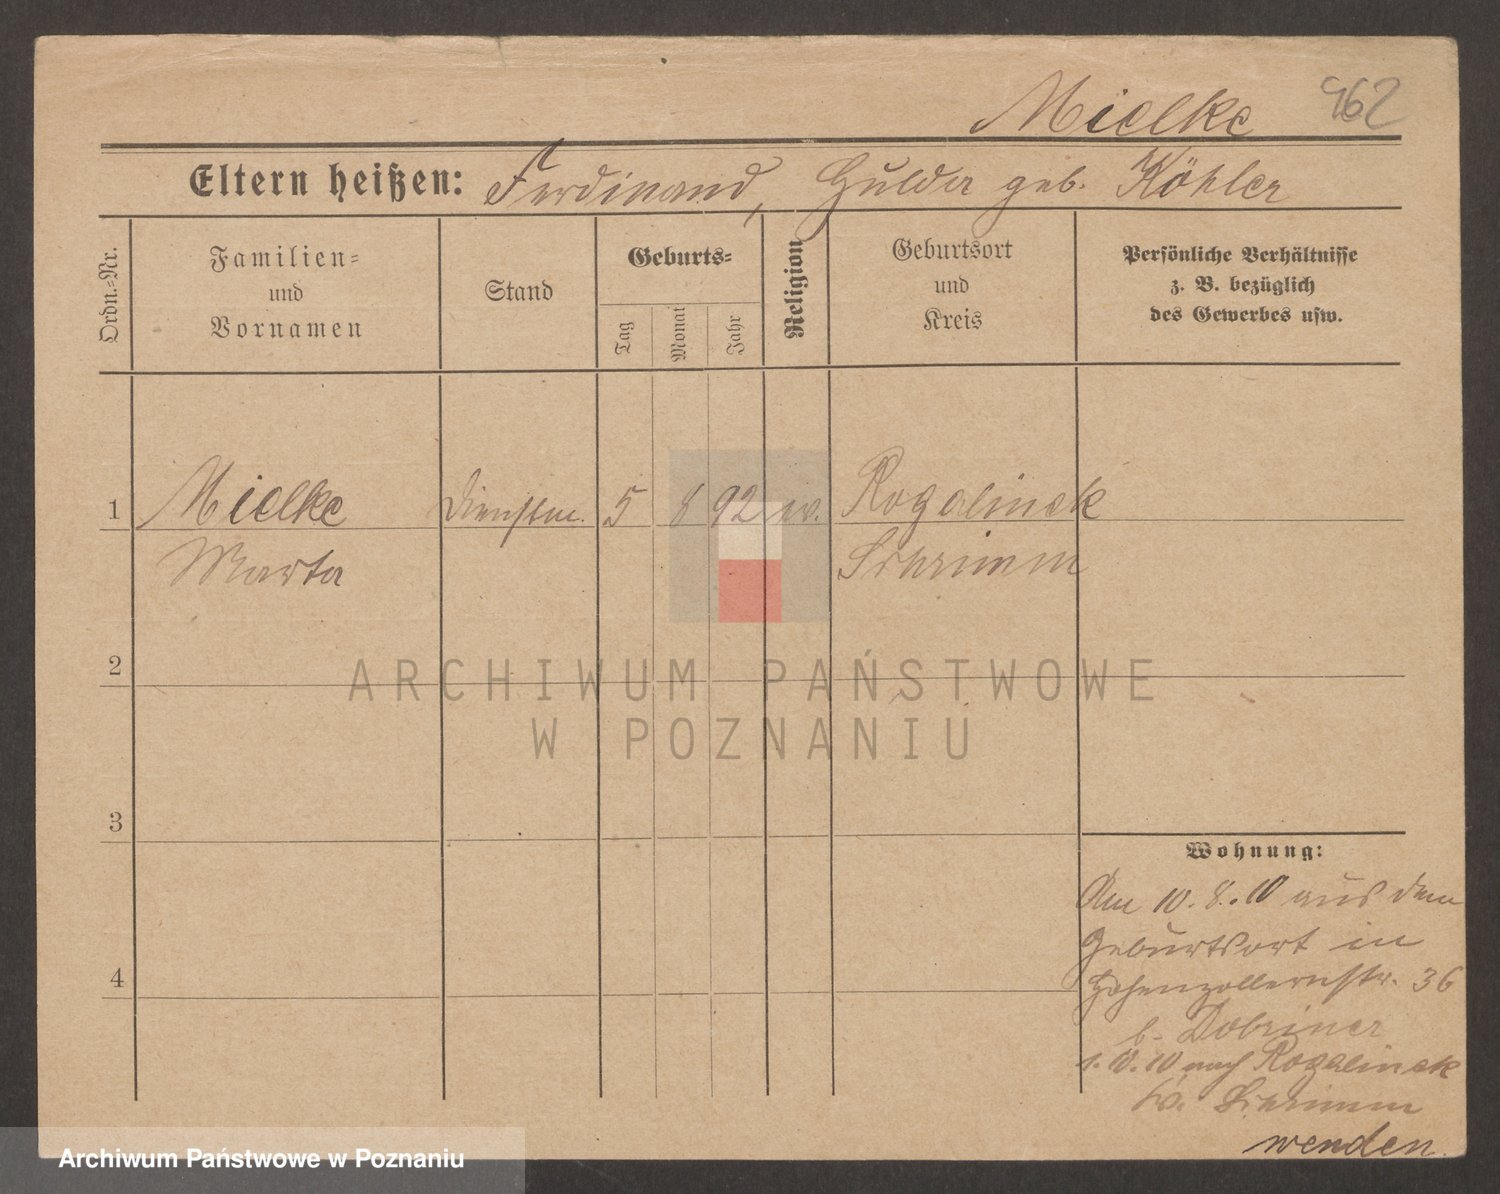 Mielke 962
Eltern heißen: Ferdinand, Hulda geb. Köhler
Ordn.=Nr.
Familien=
und
Vornamen
Stand
Geburts=
Tag
Monat
Jahr
Religion
Geburtsort
und
Kreis
Persönliche Verhältnisse
z. B. bezüglich
des Gewerbes usw.
1 Mielke Dienstm. 5 8 92 ev. Rogalinek
Marta Schrimm
2
ARCHIWUM PAŃSTWOWE
W POZNANIU
3
4
Wohnung:
Am 10.8.10 aus dem
Geburtsort in
Hohenzollernstr. 36
b. Dobriner
1.10.10 nach Rogalinek
Kr. Schrimm
wenden.
Archiwum Państwowe w Poznaniu